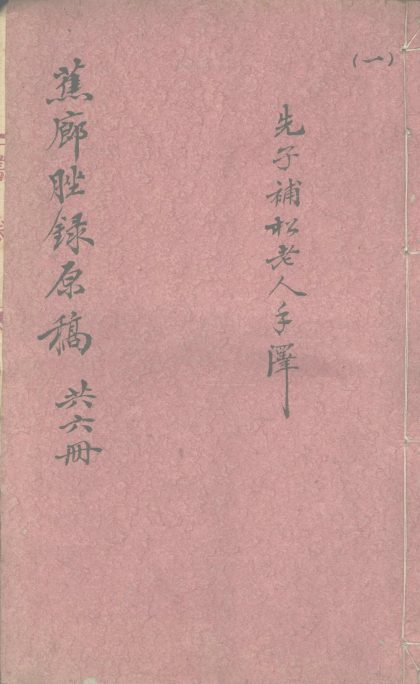 (一)
先子補松老人手澤
蕉廊脞録原稿 共六冊